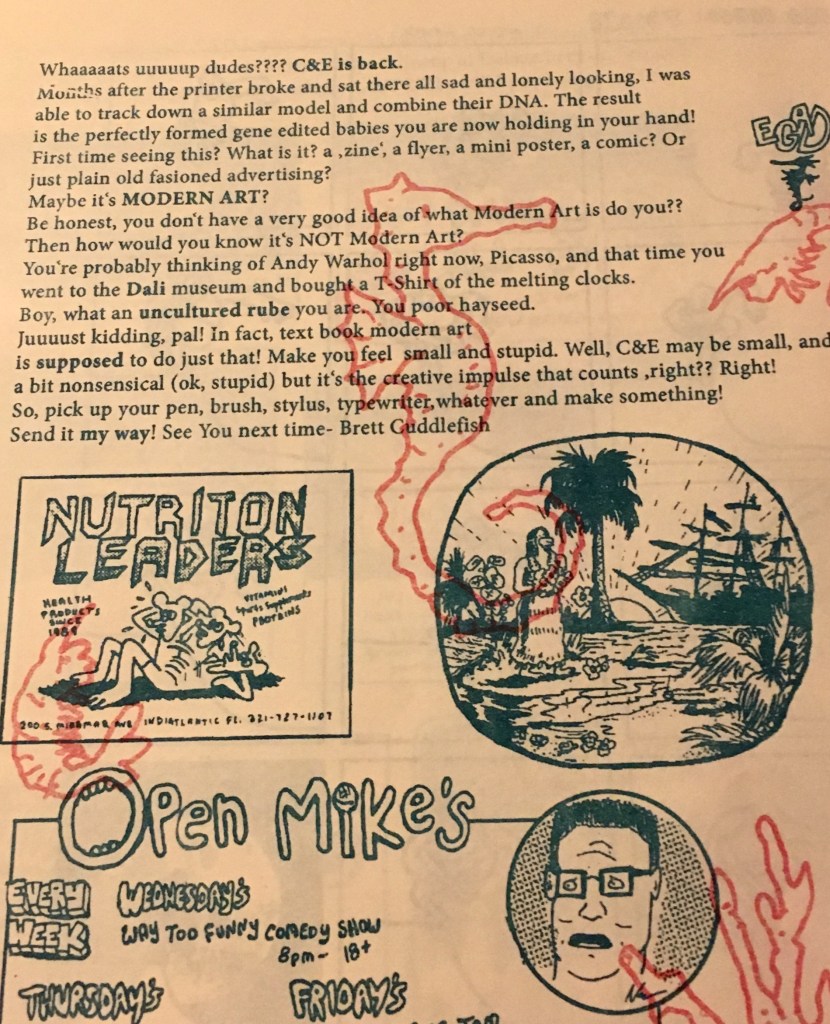 Whaaaaats uuuuup dudes???? C&E is back.
Months after the printer broke and sat there all sad and lonely looking, I was
able to track down a similar model and combine their DNA. The result
is the perfectly formed gene edited babies you are now holding in your hand!
First time seeing this? What is it? a ‚zine‘, a flyer, a mini poster, a comic? Or
just plain old fasioned advertising?
Maybe it‘s MODERN ART?
Be honest, you don‘t have a very good idea of what Modern Art is do you??
Then how would you know it‘s NOT Modern Art?
You‘re probably thinking of Andy Warhol right now, Picasso, and that time you
went to the Dali museum and bought a T-Shirt of the melting clocks.
Boy, what an uncultured rube you are. You poor hayseed.
Juuuust kidding, pal! In fact, text book modern art
is supposed to do just that! Make you feel small and stupid. Well, C&E may be small, and
a bit nonsensical (ok, stupid) but it‘s the creative impulse that counts ,right?? Right!
So, pick up your pen, brush, stylus, typewriter,whatever and make something!
Send it my way! See You next time- Brett Cuddlefish
EGAD
NUTRITON
LEADERS
HEALTH
PRODUCTS
SINCE
1989
VITAMINS
Sports Supplements
PROTEINS
200 S. MIRAMAR AVE INDIATLANTIC FL. 321-727-1107
OPEN MIKE'S
EVERY
WEEK
WEDNESDAY'S
WAY TOO FUNNY COMEDY SHOW
8pm- 18+
THURSDAY'S
FRIDAY'S